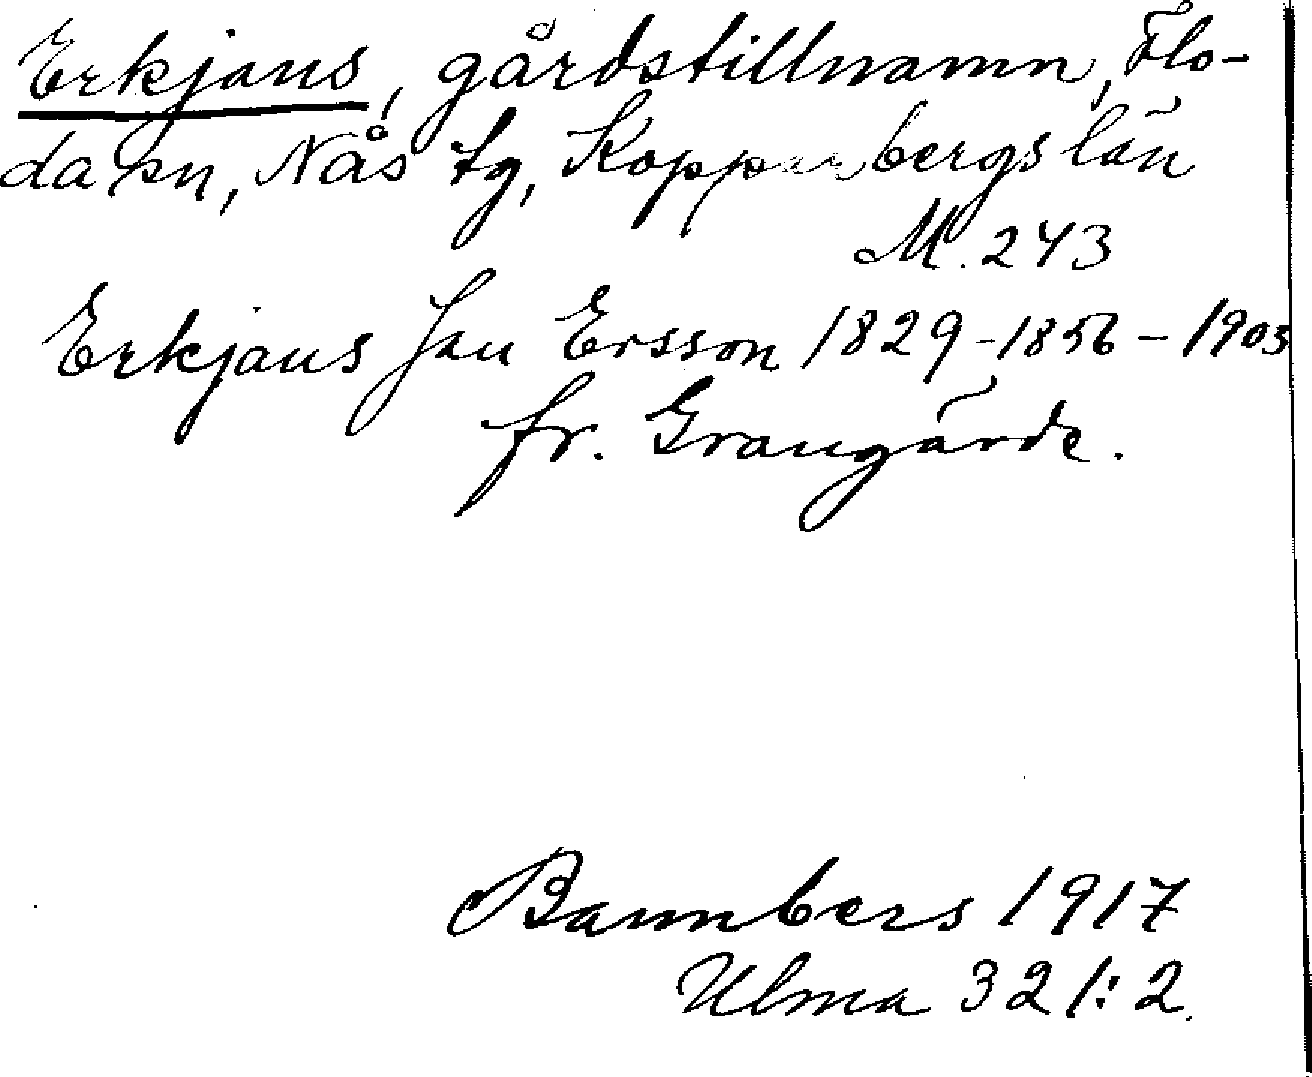 Erkjans, gårdstillnamn, Flo-
da sn, Nås tg, Kopparbergs län
M. 243
Erkjans Jan Ersson 1829-1856-1903
fr. Grangärde.
Bannbers 1917
Ulma 321:2.